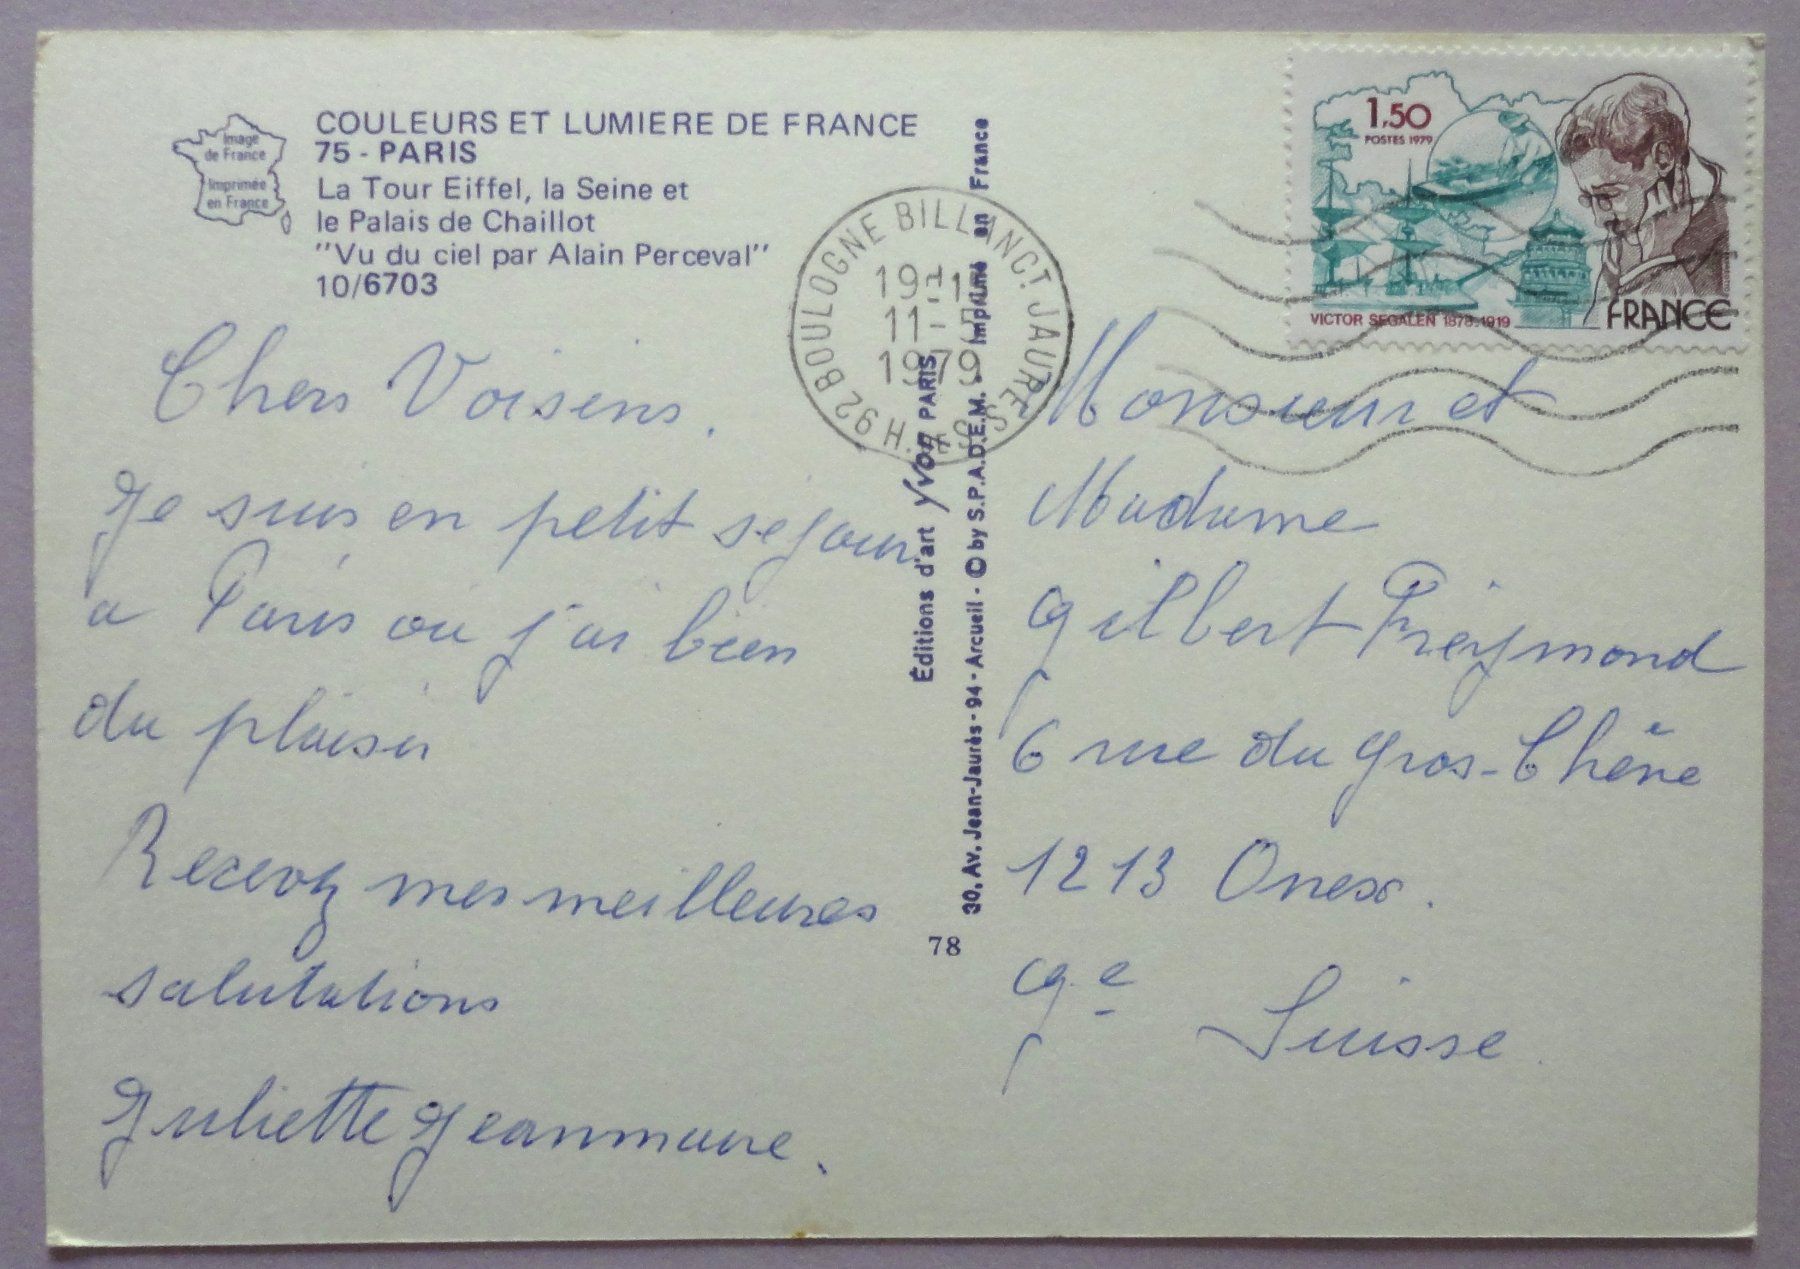 Image
de France
Imprimée
en France
COULEURS ET LUMIERE DE FRANCE
75 - PARIS
La Tour Eiffel, la Seine et
le Palais de Chaillot
"Vu du ciel par Alain Perceval"
10/6703
Chers Voisins.
Je suis en petit séjour
a Paris ou j'ai bien
du plaisir
Recevez mes meilleures
salutations
Juliette Jeanmaire.
Éditions d'art Yvon PARIS
30, Av. Jean-Jaurès - 94 - Arcueil - © by S.P.A.D.E.M. - Imprimé en France
78
BOULOGNE BILLANCT. JAURES
H. 92
11-
1979
1,50
POSTES 1979
VICTOR SEGALEN 1878-1919
FRANCE
Monsieur et
Madame
Gilbert Freymond
6 rue du Gros-Chêne
1213 Onex.
Ge
Suisse